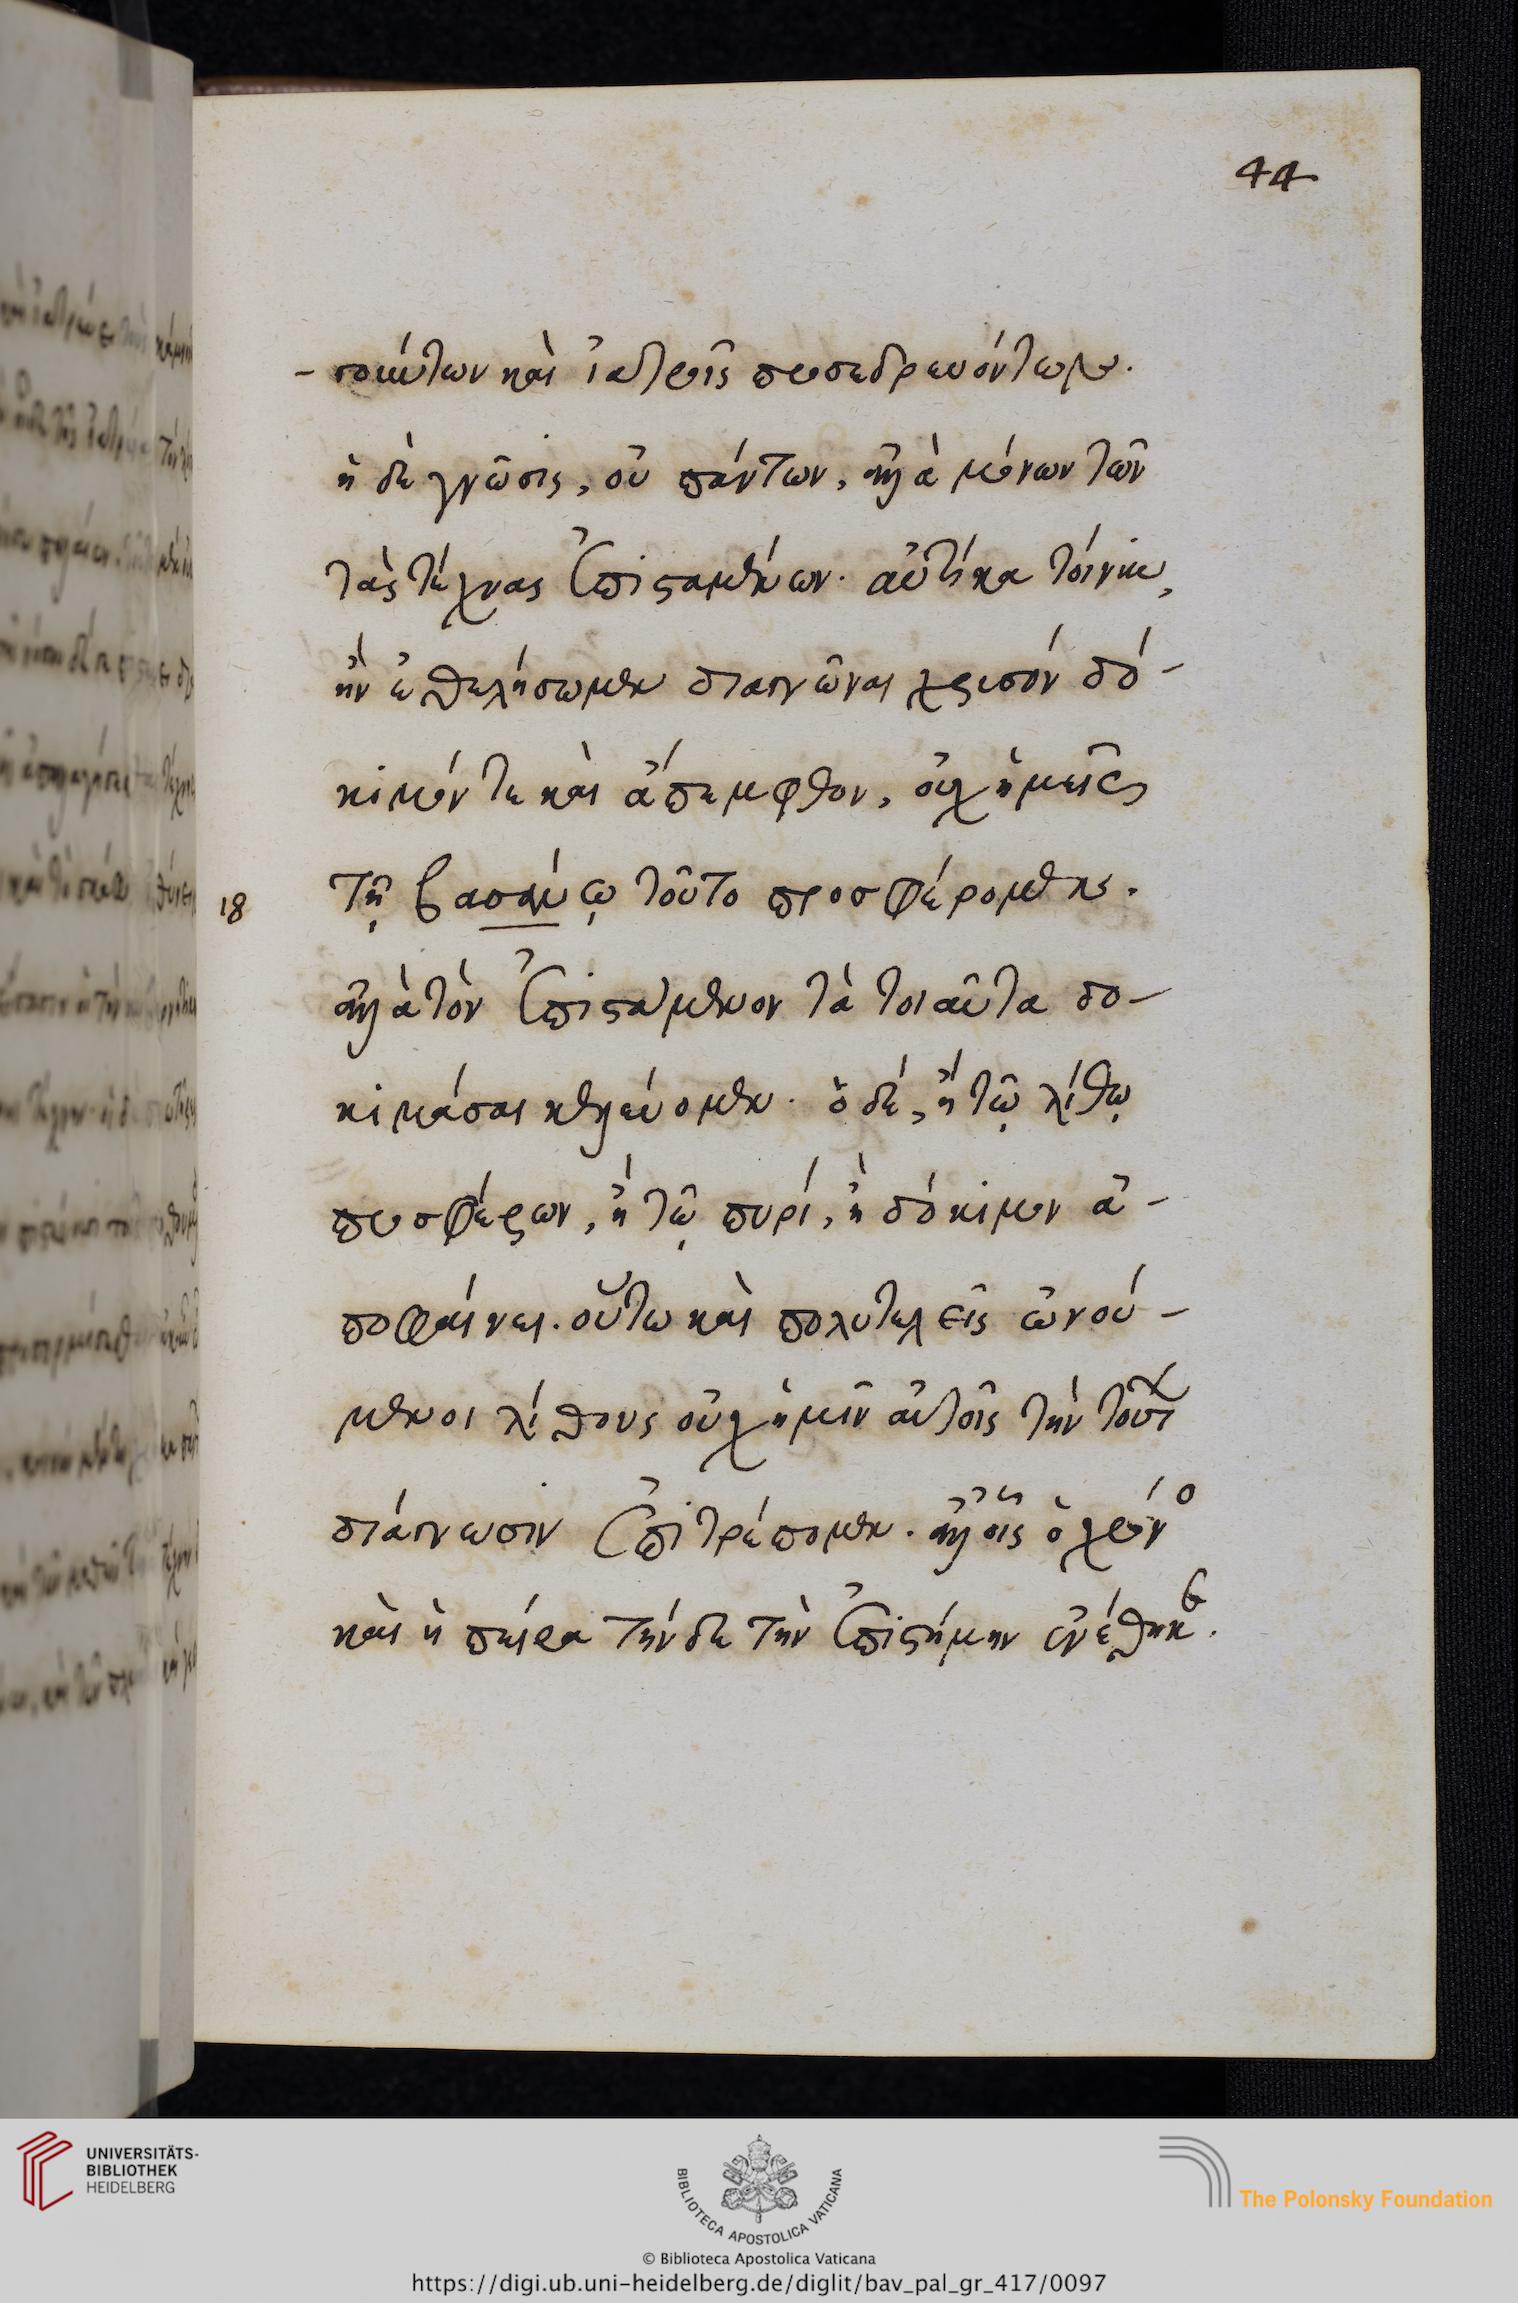 44
- ποιούντων καὶ ἰατροῖς προσεδρευόντων.
ἡ δὲ γνῶσις, οὐ πάντων, ἀλλὰ μόνων τῶν
τὰς τέχνας ἐπισταμένων. αὐτίκα τοίνυν,
ἢν ἐθελήσωμεν διαγνῶναι χρυσόν δό-
κιμόν τε καὶ ἄπεμφθον, οὐχ ἡμεῖς
18 τῇ βασάνῳ τοῦτο προσφέρομεν.
ἀλλὰ τὸν ἐπιστάμενον τὰ τοιαῦτα δο-
κιμάσαι κελεύομεν. ὁ δέ, ἢ τῷ λίθῳ
προσφέρων, ἢ τῷ πυρί, ἢ δόκιμον ἀ-
ποφαίνει. οὕτω καὶ πολυτελεῖς ὠνού-
μενοι λίθους οὐχ ἡμῖν αὐτοῖς τὴν τούτων
διάγνωσιν ἐπιτρέπομεν. ἀλλ' οἷς ὁ χρόνο
καὶ ἡ πεῖρα τήνδε τὴν ἐπιστήμην ἐνέθηκε.
UNIVERSITÄTS-
BIBLIOTHEK
HEIDELBERG
BIBLIOTECA APOSTOLICA VATICANA
The Polonsky Foundation
© Biblioteca Apostolica Vaticana
https://digi.ub.uni-heidelberg.de/diglit/bav_pal_gr_417/0097